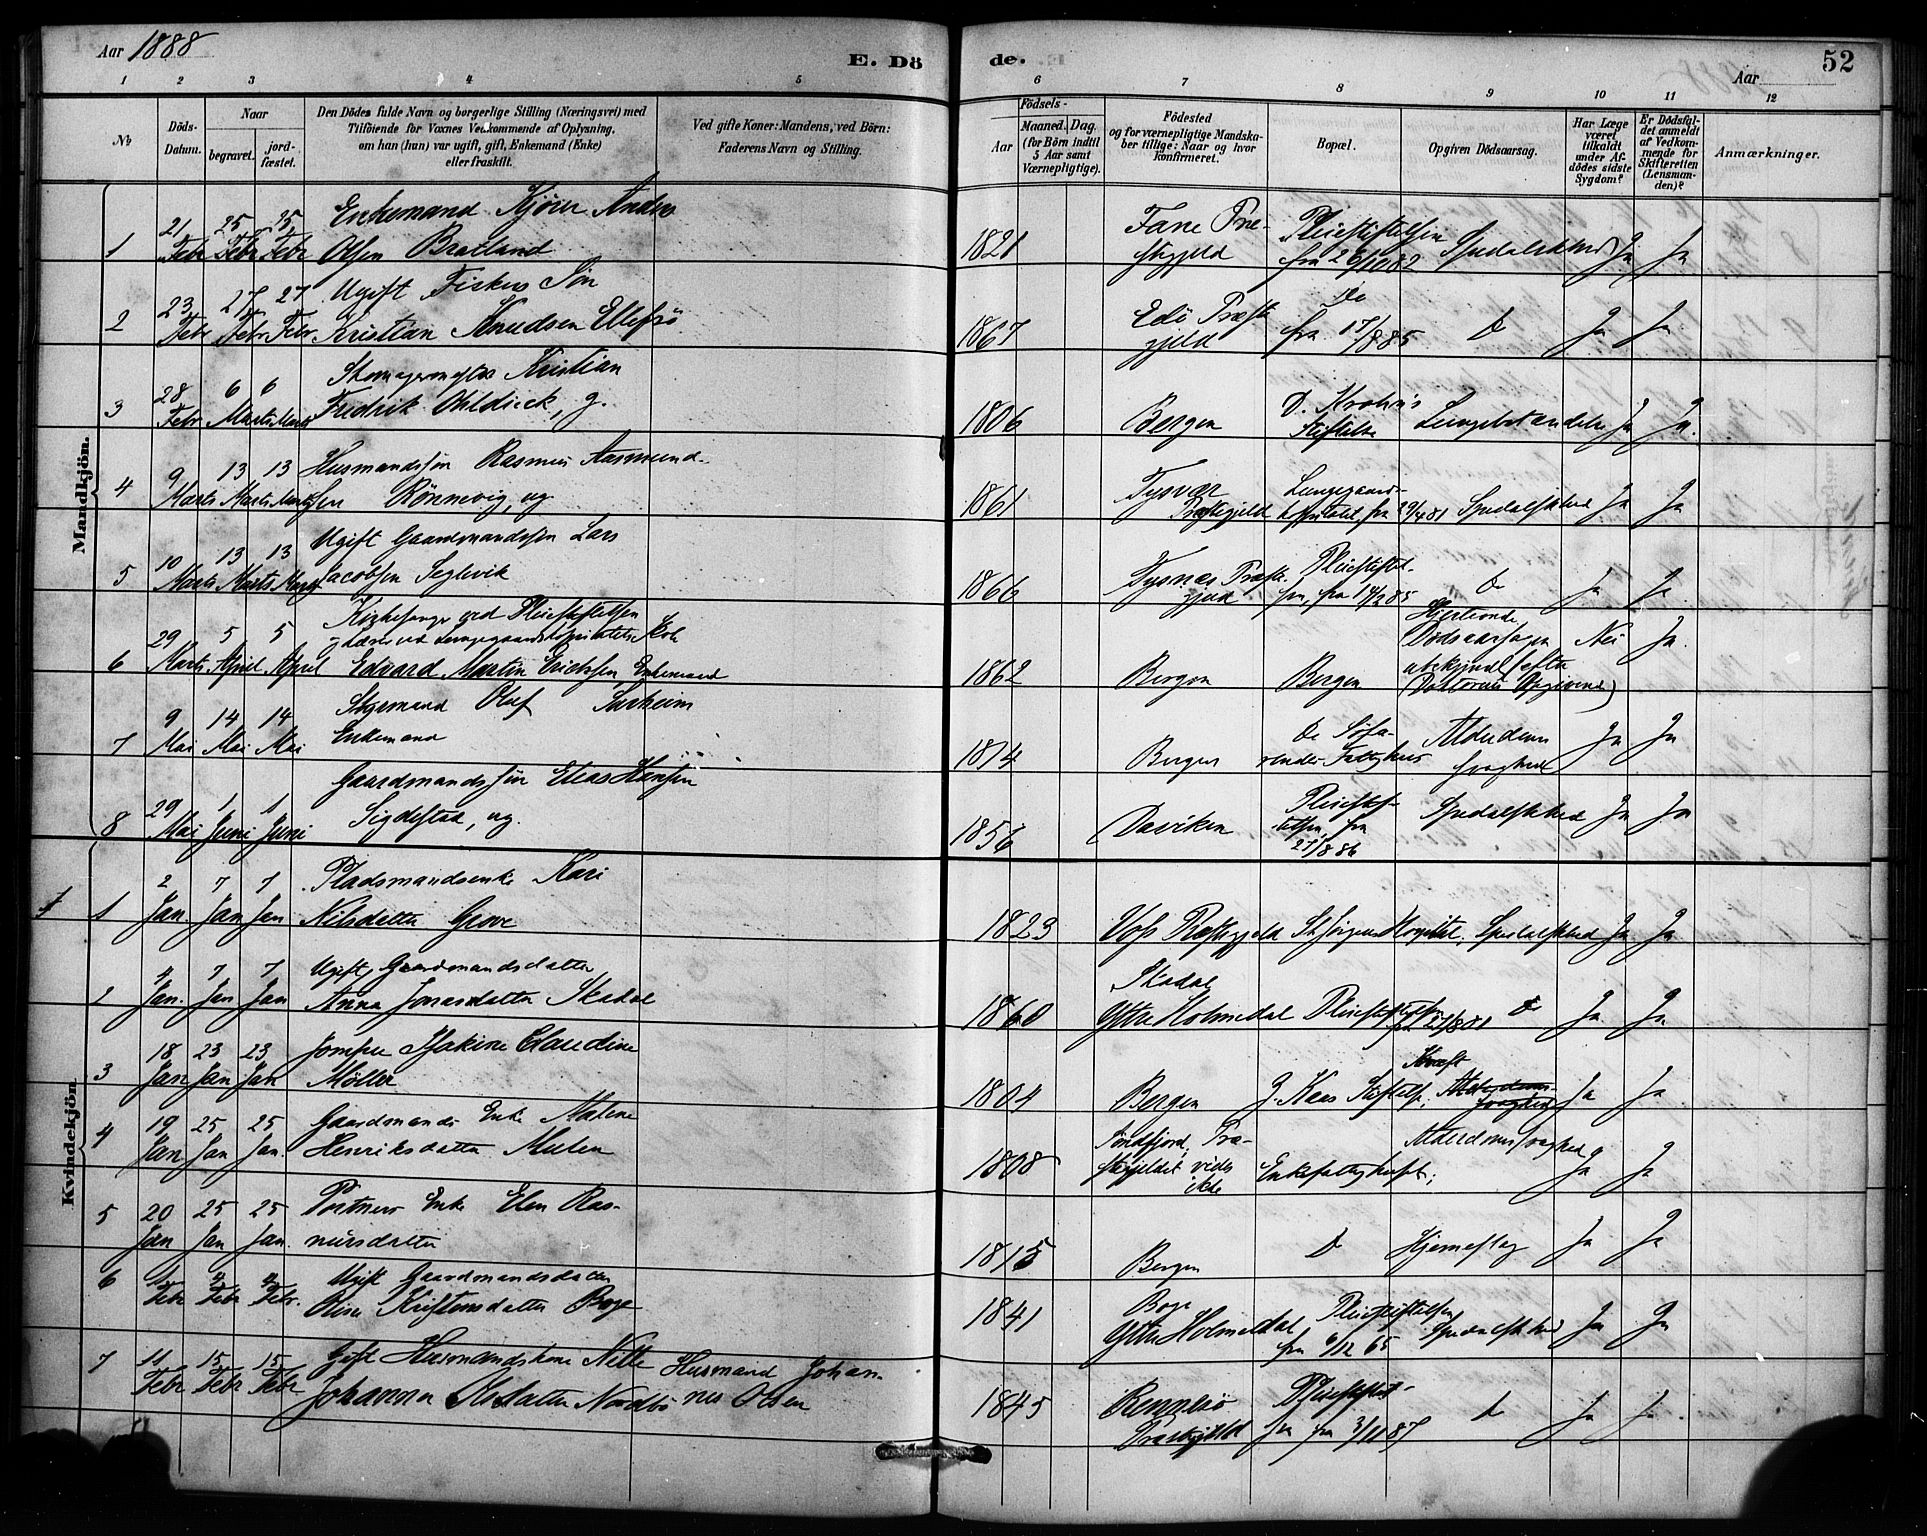 Aar 1888
E. Dö
de.
Aar
52
1 2 3 4 5
6 7 8 9 10 11 12
No
Döds-
Datum.
Naar
begravet.
jord-
fæstet.
Den Dödes fulde Navn og borgerlige Stilling (Næringsvei) med
Tilföiende for Voxnes Vedkommende af Oplysning,
om han (hun) var ugift, gift, Enkemand (Enke)
eller fraskilt.
Ved gifte Koner: Mandens, ved Börn:
Faderens Navn og Stilling.
Födsels-
Aar
Maaned. Dag.
(for Börn indtil
5 Aar samt
Værnepligtige).
Födested
og for værnepligtige Mandska-
ber tillige: Naar og hvor
konfirmeret.
Bopæl.
Opgiven Dödsaarsag.
Har Læge
været
tilkaldt
under Af-
dödes sidste
Sygdom?
Er Dödsfal-
det anmeldt
af Vedkom-
mende for
Skifteretten
(Lensman-
den)?
Anmærkninger.
Mandkjön.
1 21 Febr 25 Febr 25 Febr
Enkemand Anders
Olsen Bratland
1821 Fane Præ-
stegjeld
Pleiestiftelsen
Spedalskhed Ja Ja
2 23 Febr 27 Febr 27 Febr
Ugift Fiskers Søn
Kristian Knudsen Ellefsö
1867 Edö Præste
gjeld
Do
fra 17/8 85
Do Ja Ja
3 28 Febr 6 Marts 6 Marts
Skomagermester Kristian
Fredrik Ohldieck, g.
1806 Bergen
D. Krohn's
Stiftelse
Lungebetændelse Ja Ja.
4 9 Marts 13 Marts 13 Marts
Husmandssøn Rasmus Aasmund-
sen Rönnevig, ug.
1861 Tysvær
Præstegjeld
Lungegaards-
hospitalet, fra 29/4 81
Spedalskhed Ja Ja
5 10 Marts 13 Marts 13 Marts
Ugift Gaardmandssøn Lars
Jacobsen Seglevik
1866 Tysnæs Præste
gjeld
Pleiestiftel-
sen, fra
Do Ja Ja
6 29 Marts 5 April 5 April
Kirkesanger ved Pleiestiftelsen
og Lærer ved Lungegaardshospitalets Skole
Edvard Martin Erichsen, Enkemand
1862 Bergen Bergen
Hjerteonde
Dödsaarsagen
ubekjendt (efter
Doktorens Opgivende)
Nei Ja.
7 9 Mai 14 Mai 14 Mai
Styrmand Oluf
Enkemand
1814 Bergen
De Söfa-
rendes Fattighus
Alderdoms
svaghed
Ja Ja
8 29 Mai 1 Juni 1 Juni
Gaardmandssøn Elias Hansen
Sigdestad, ug.
1856 Daviken
Pleiestif-
telsen, fra
27/8 86
Spedalskhed Ja Ja
Kvindekjön.
1 2 Jan. 7 Jan 7 Jan
Pladsmandsenke Kari
Nilsdatter Grove
1823 Voss Præstegjeld St Jörgens Hospital, Spedalskhed Ja Ja
2 4 Jan. 7 Jan 7 Jan
Ugift, Gaardmandsdatter
Anna Jonasdatter Skadal
1860 Skadal
Ytre Holmedal
Pleiestiftelsen
Do Ja Ja
3 18 Jan 23 Jan 23 Jan
Jomfru Claudine
Möller
1804 Bergen
Stiftelse,
Kræft
Ja Ja
4 19 Jan 25 Jan 25 Jan
Gaardmands Enke Malene
Henriksdatter Mulen
1808 Söndfjord, Præ-
stegjeldet vides
ikke
Enkefattighuset;
Alderdomssvaghed
Ja Ja
5 20 Jan 25 Jan 25 Jan.
Portners Enke Elen Ras-
musdatter
1815 Bergen Do Hjerneslag Ja Ja
6 1 Febr 4 Febr 4 Febr.
Ugift Gaardmandsdatter
Kristensdatter Boge
1841 Boge
Ytre Holmedal
Pleiestiftelsen
fra 6/12 65
Spedalskhed Ja Ja
7 11 Febr 15 Febr 15 Febr
Gift Husmandskone Nille
Johanna Olsdatter Nordbö
Husmand Johan-
nes Olsen
1845 Rennesö
Præstegjeld
Pleiestiftel-
sen fra 3/11 87
Do Ja Ja.